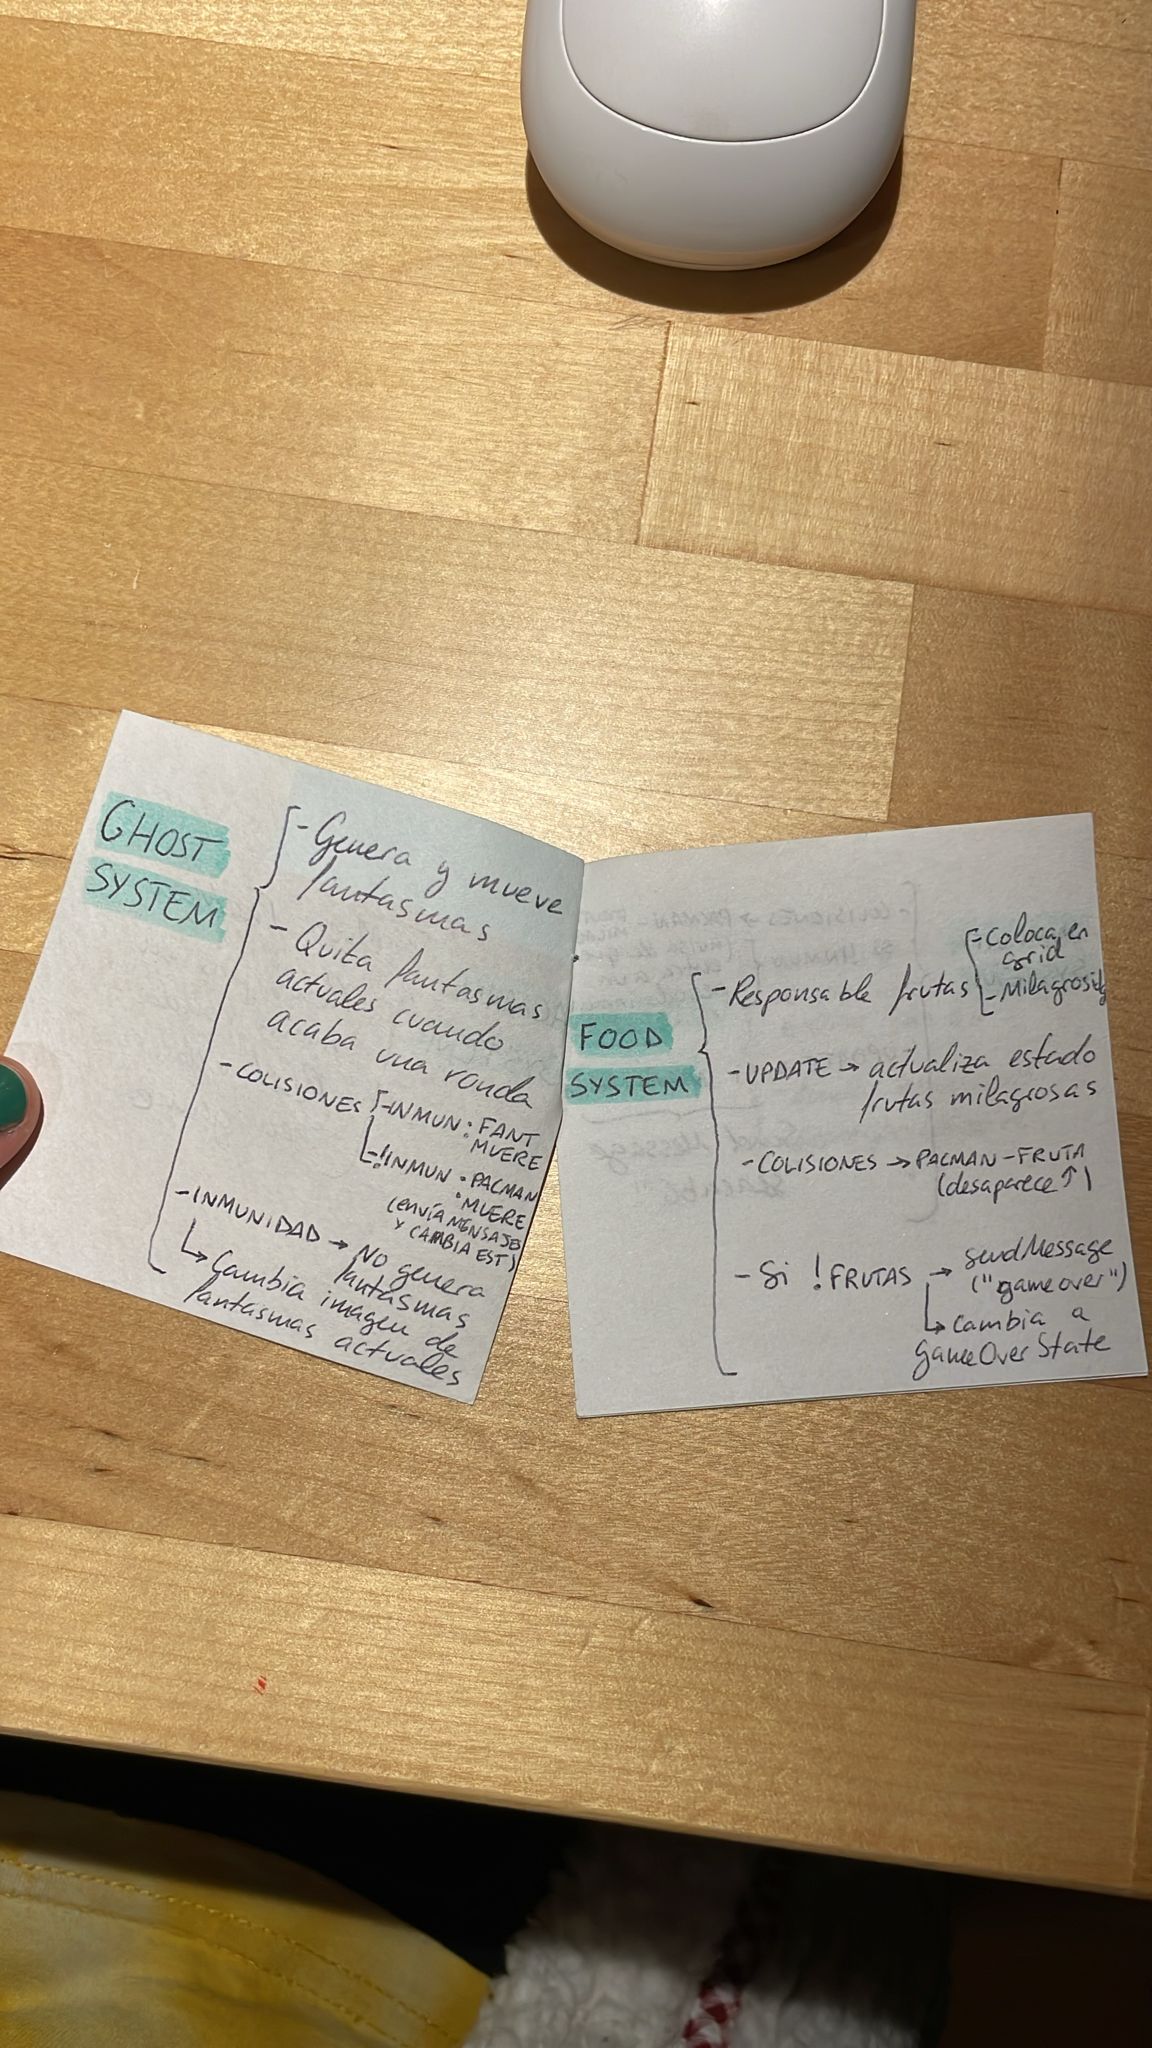 GHOST
SYSTEM
- Genera y mueve
fantasmas
- Quita fantasmas
actuales cuando
acaba una ronda
- COLISIONES
- INMUN: FANT
MUERE
- !INMUN: PACMAN
MUERE
(ENVÍA MENSAJES
Y CAMBIA EST)
- INMUNIDAD → NO genera
fantasmas
↳ Cambia imagen de
fantasmas actuales
FOOD
SYSTEM
- Responsable frutas
- Coloca en
grid
- UPDATE → actualiza estado
frutas milagrosas
- COLISIONES → PACMAN - FRUTA
(desaparece ↑)
- Si !FRUTAS → sendMessage
("gameover")
↳ Cambia a
gameOverState